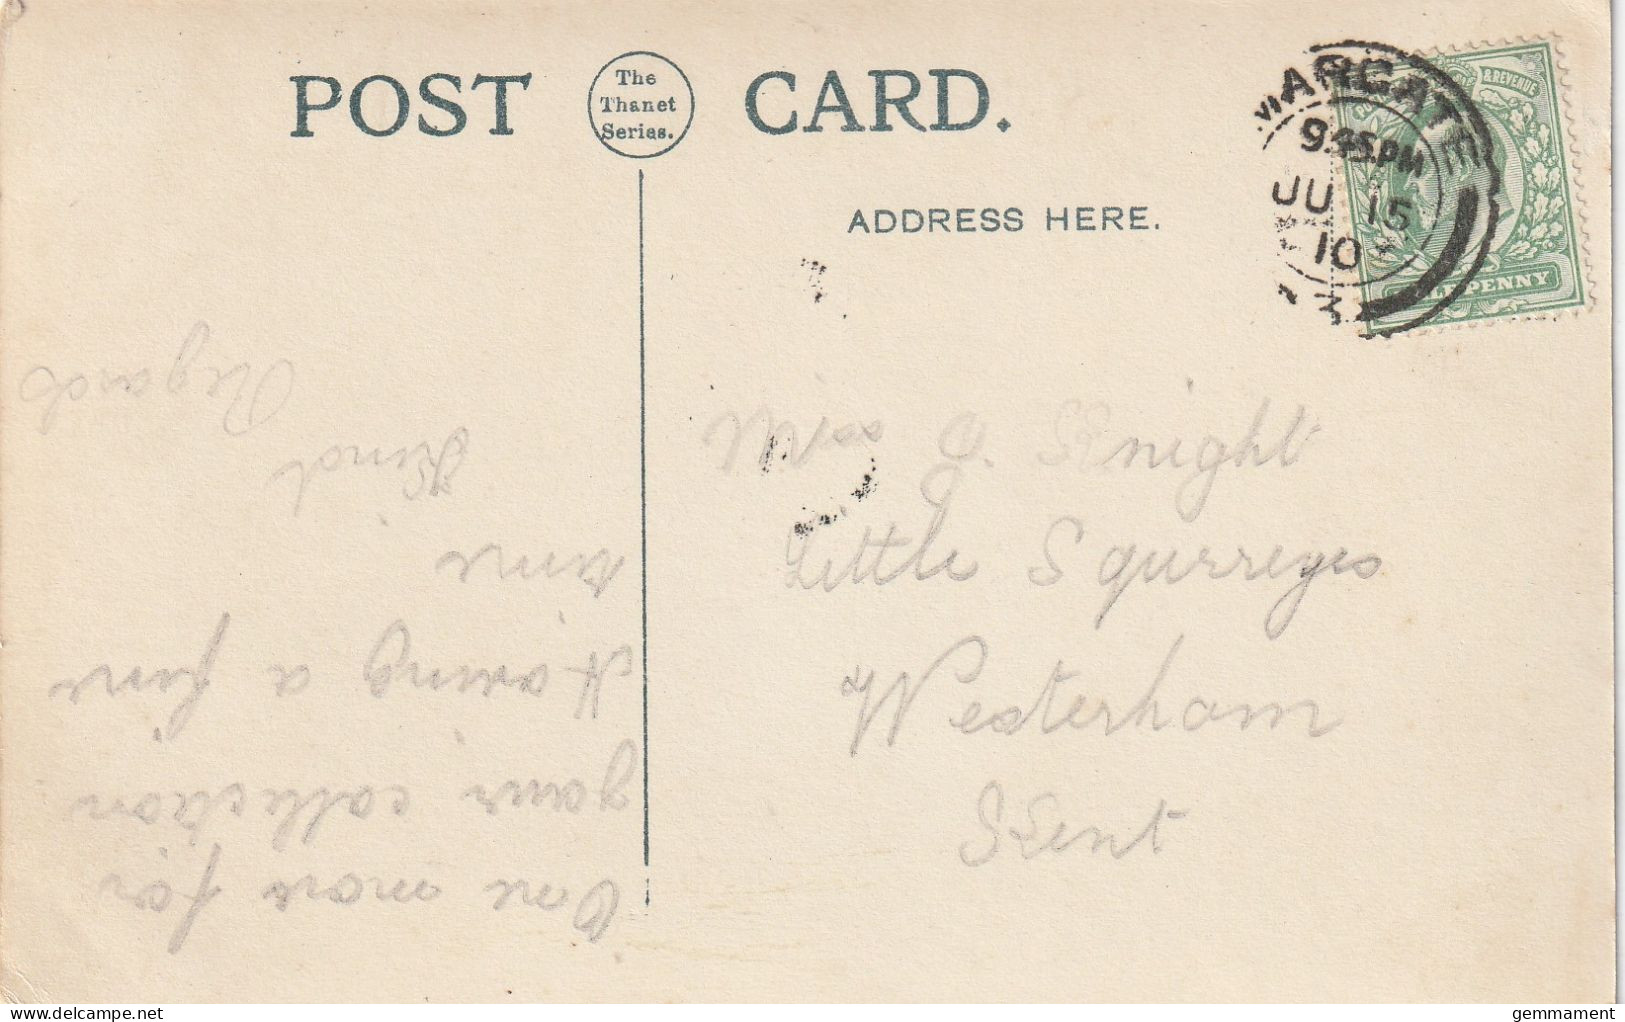 POST CARD.
The
Thanet
Series.
ADDRESS HERE.
MARGATE
9.45 PM
JU 15
10
3
& REVENUE
HALFPENNY
Miss O. Knight
Little Squerreyes
Westerham
Kent
One more for
your collection
Having a fine
time
Kind
Regards
delcampe.net
gemmament